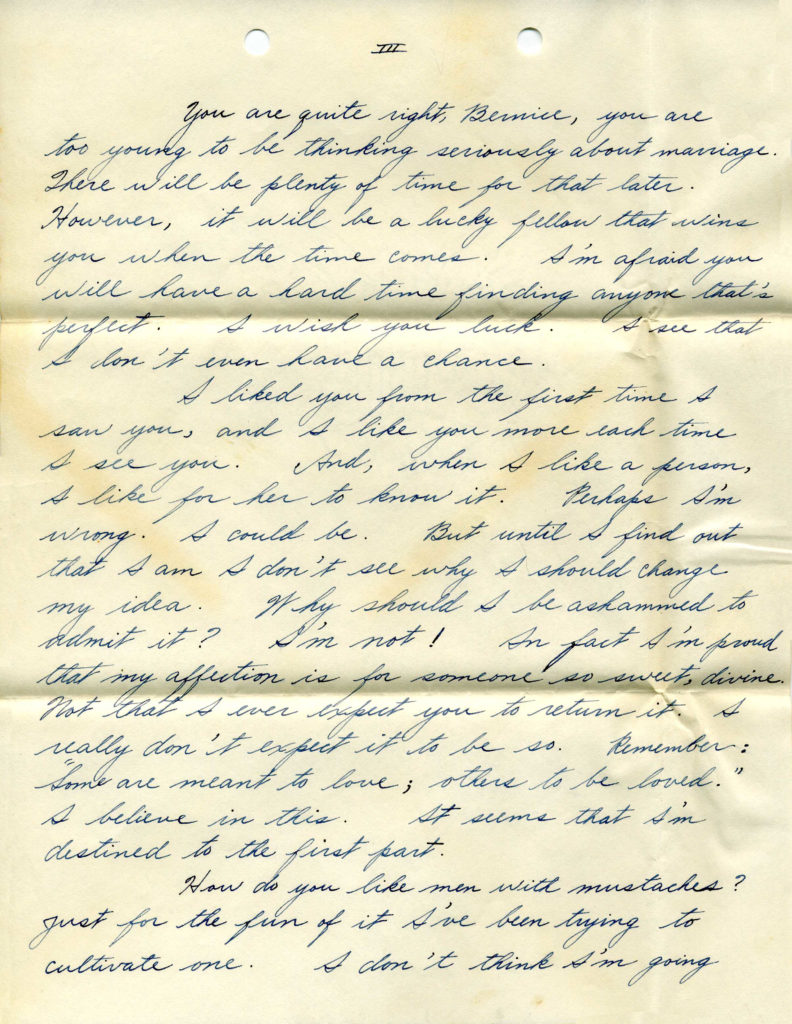 III
You are quite right, Bernice, you are
too young to be thinking seriously about marriage.
There will be plenty of time for that later.
However, it will be a lucky fellow that wins
you when the time comes. I'm afraid you
will have a hard time finding anyone that's
perfect. I wish you luck. I see that
I don't even have a chance.
I liked you from the first time I
saw you, and I like you more each time
I see you. And, when I like a person,
I like for her to know it. Perhaps I'm
wrong. I could be. But until I find out
that I am I don't see why I should change
my idea. Why should I be askammed to
admit it? I'm not! In fact I'm proud
that my affection is for someone so sweet, divine.
Not that I ever expect you to return it. I
really don't expect it to be so. Remember:
"Some are meant to love; others to be loved."
I believe in this. It seems that I'm
destined to the first part.
How do you like men with mustaches?
Just for the fun of it I've been trying to
cultivate one. I don't think I'm going